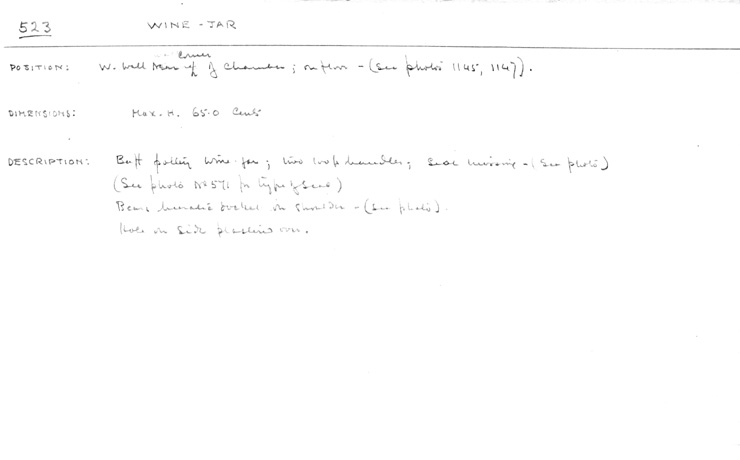 523 WINE-JAR
POSITION: W. Wall near corner of Chamber; on floor - (See photos 1145, 1147).
DIMENSIONS: Max. H. 65.0 Cents
DESCRIPTION: Buff pottery wine-jar; two loop handles; seal missing - (See photo)
(See photo No 571 for type of seal)
Bears hieratic docket on shoulder - (See photo).
Hole on side plastered over.